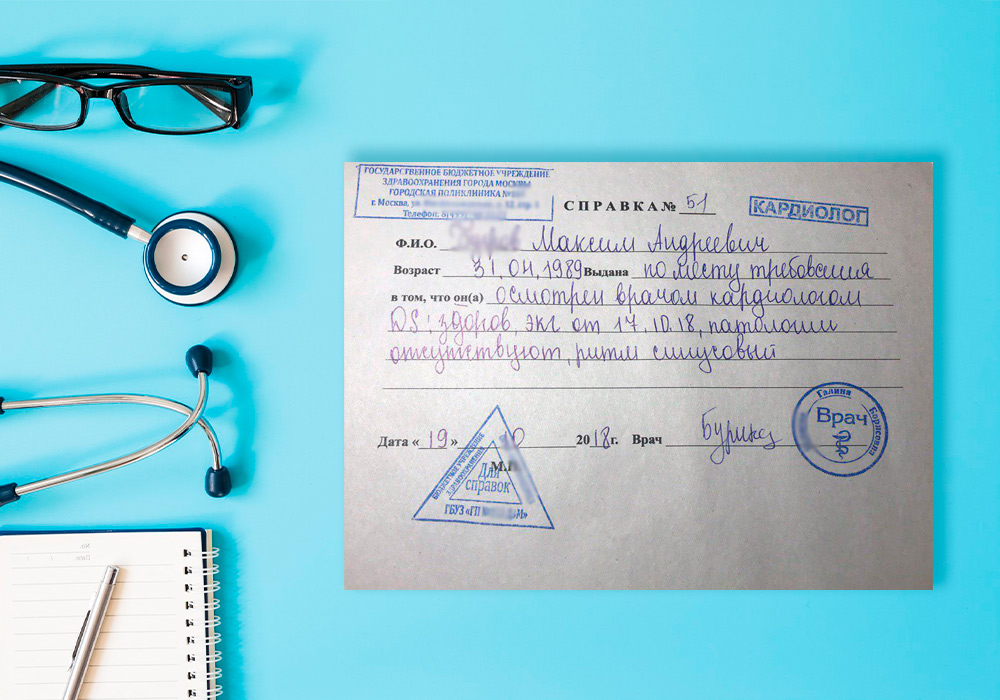 ГОСУДАРСТВЕННОЕ БЮДЖЕТНОЕ УЧРЕЖДЕНИЕ
ЗДРАВООХРАНЕНИЯ ГОРОДА МОСКВЫ
ГОРОДСКАЯ ПОЛИКЛИНИКА №
г. Москва, ул.
Телефон:
СПРАВКА № 51
КАРДИОЛОГ
Ф.И.О. Максим Андреевич
Возраст 31.04.1989 Выдана по месту требования
в том, что он(а) осмотрен врачом кардиологом
DS: здоров, экг от 17.10.18, патологии
отсутствуют, ритм синусовый
Дата « 19 » 10 2018г. Врач
Галина Борисовна
Врач
М.П
БЮДЖЕТНОЕ УЧРЕЖДЕНИЕ
ЗДРАВООХРАНЕНИЯ
Для
справок
ГБУЗ «ГП
No.
Date